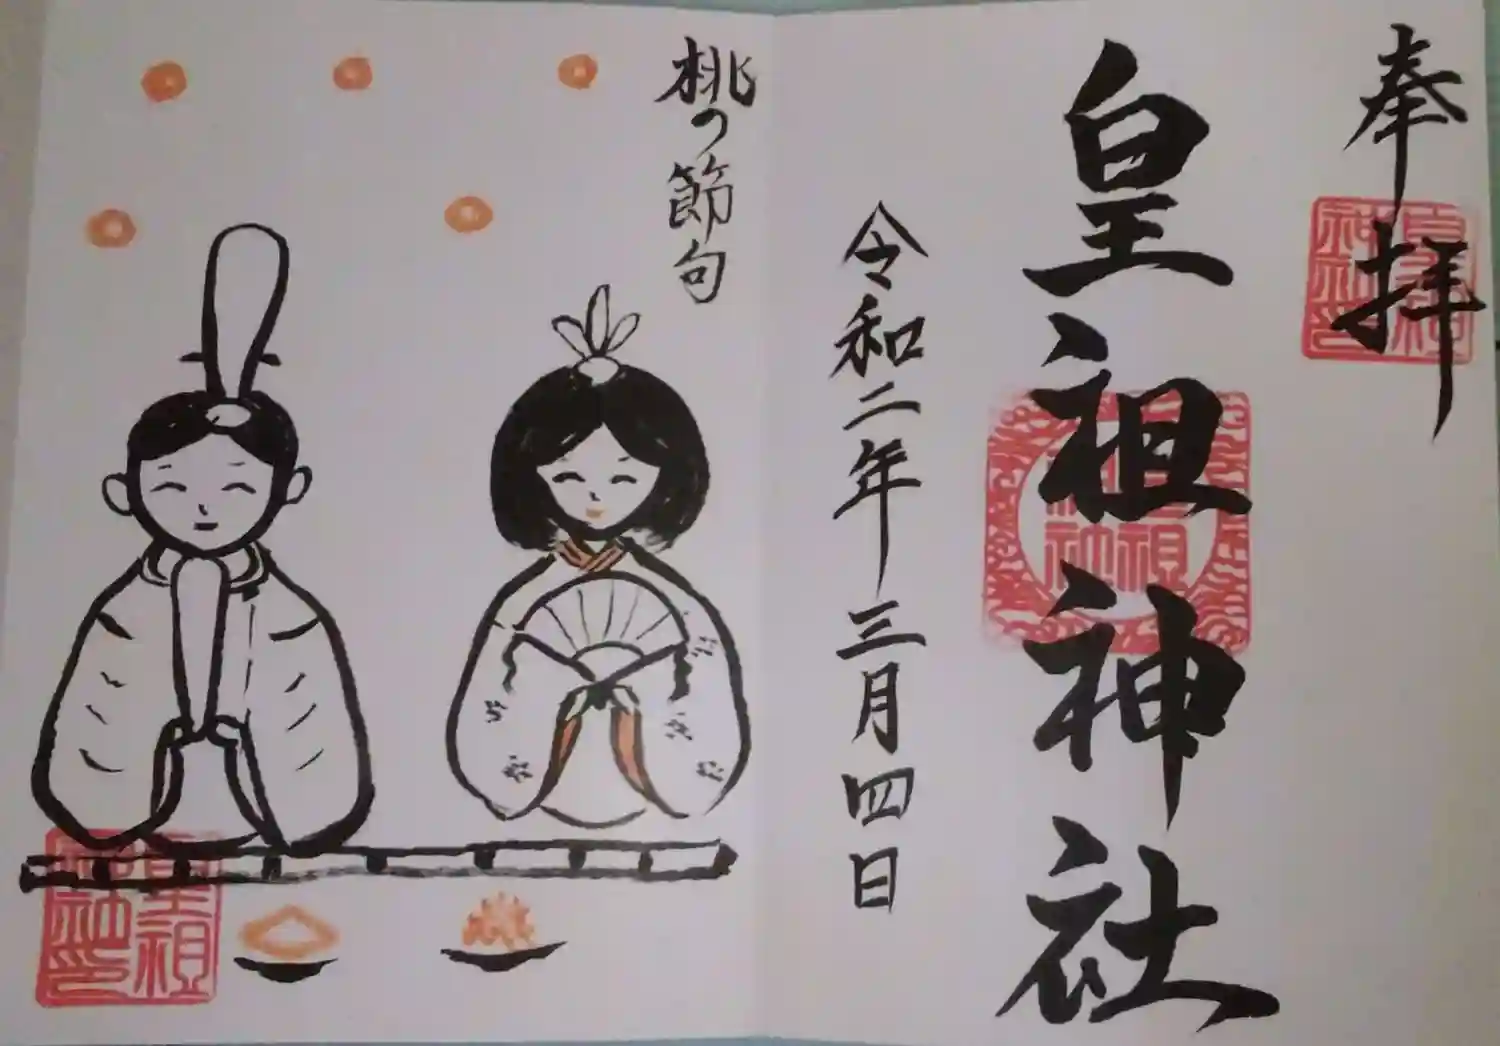 奉拝
皇祖神社
令和二年三月四日
桃の節句
皇祖
神社
皇祖
神社印
皇祖
神社印